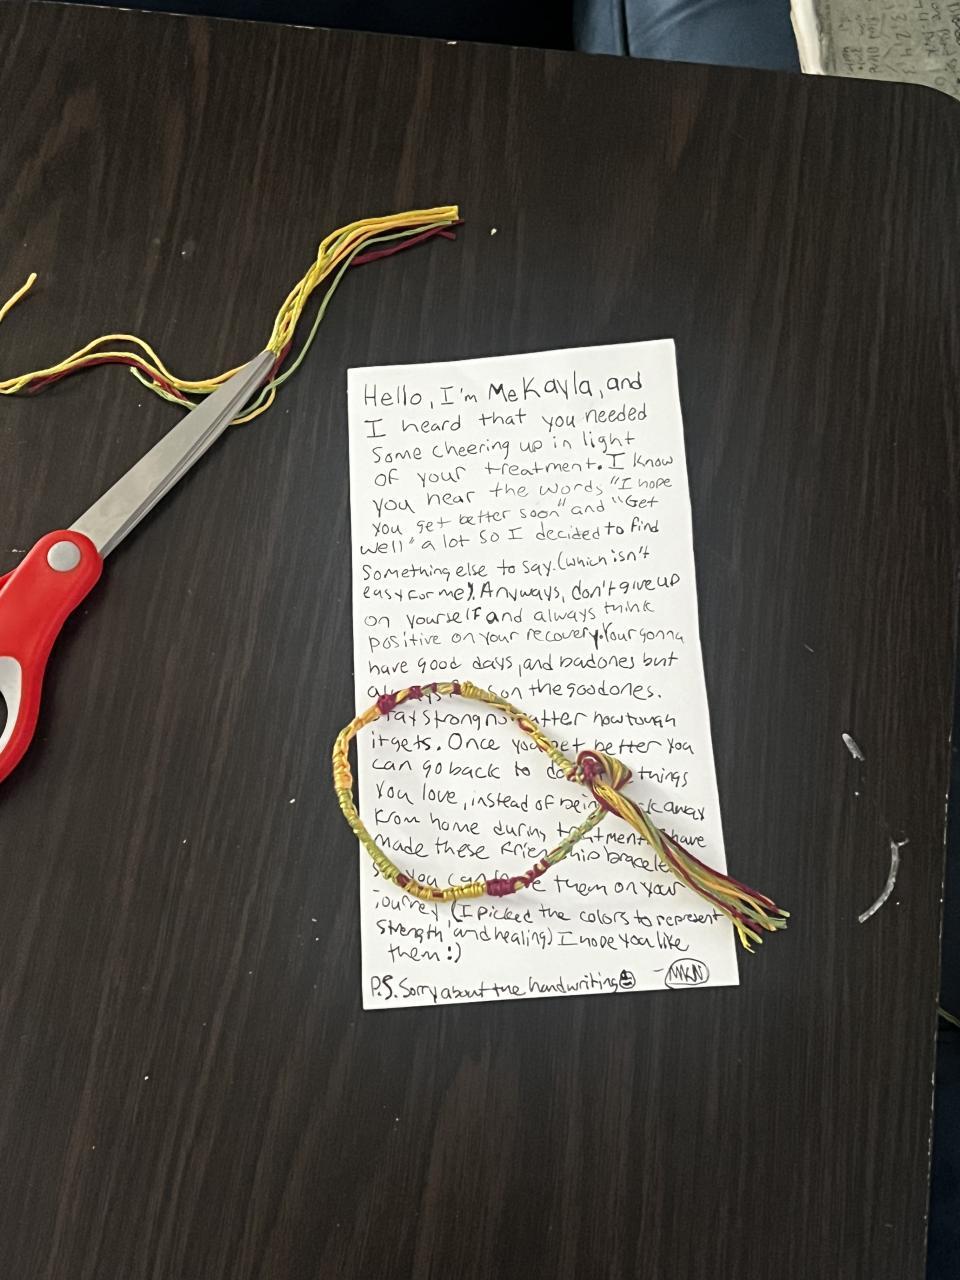 Hello, I'm McKayla, and
I heard that you needed
Some cheering up in light
of your treatment. I know
you hear the words "I hope
you get better soon" and "Get
well" a lot so I decided to find
Something else to say. (which isn't
easy for me). Anyways, don't give up
on yourself and always think
positive on your recovery. Your gonna
have good days, and bad ones but
on the good ones.
Stay strong no matter how tough
it gets. Once you get better you
can go back to things
you love, instead of away
from home during treatment. have
made these friendship
you can them on your
journey (I picked the colors to represent
strength and healing) I hope you like
them :)
P.S. Sorry about the handwriting - MKN